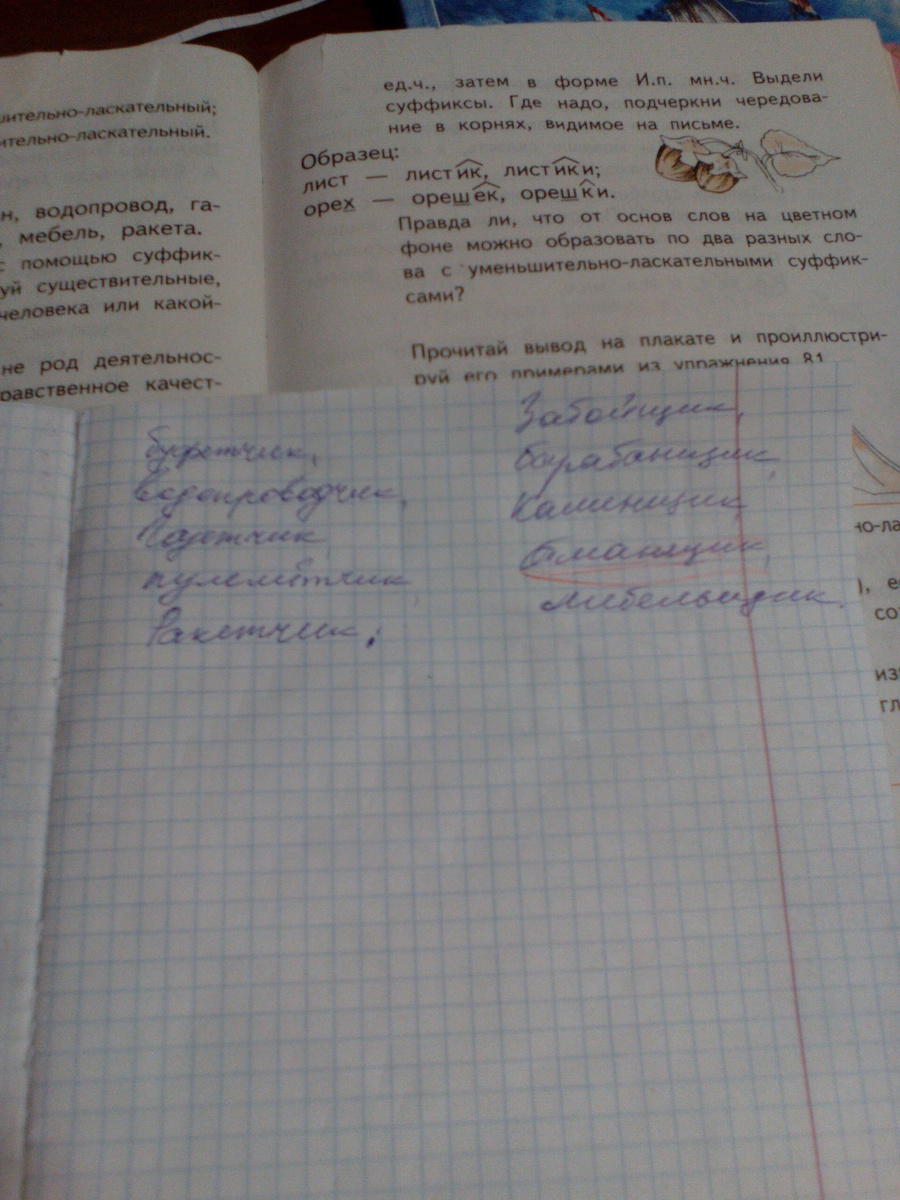 шительно-ласкательный;
ительно-ласкательный.
н, водопровод, га-
, мебель, ракета.
с помощью суффик-
уй существительные,
человека или какой-
не род деятельнос-
равственное качест-
ед.ч., затем в форме И.п. мн.ч. Выдели
суффиксы. Где надо, подчеркни чередова-
ние в корнях, видимое на письме.
Образец:
лист — листик, листики;
орех — орешек, орешки.
Правда ли, что от основ слов на цветном
фоне можно образовать по два разных сло-
ва с уменьшительно-ласкательными суффик-
сами?
Прочитай вывод на плакате и проиллюстри-
руй его примерами из упражнения 81
буфетчик,
водопроводчик,
Газетчик
пулемётчик
Ракетчик.
Забойщик,
барабанщик,
Каменщик,
мебельщик.
но-ла
), е
со
из
гл